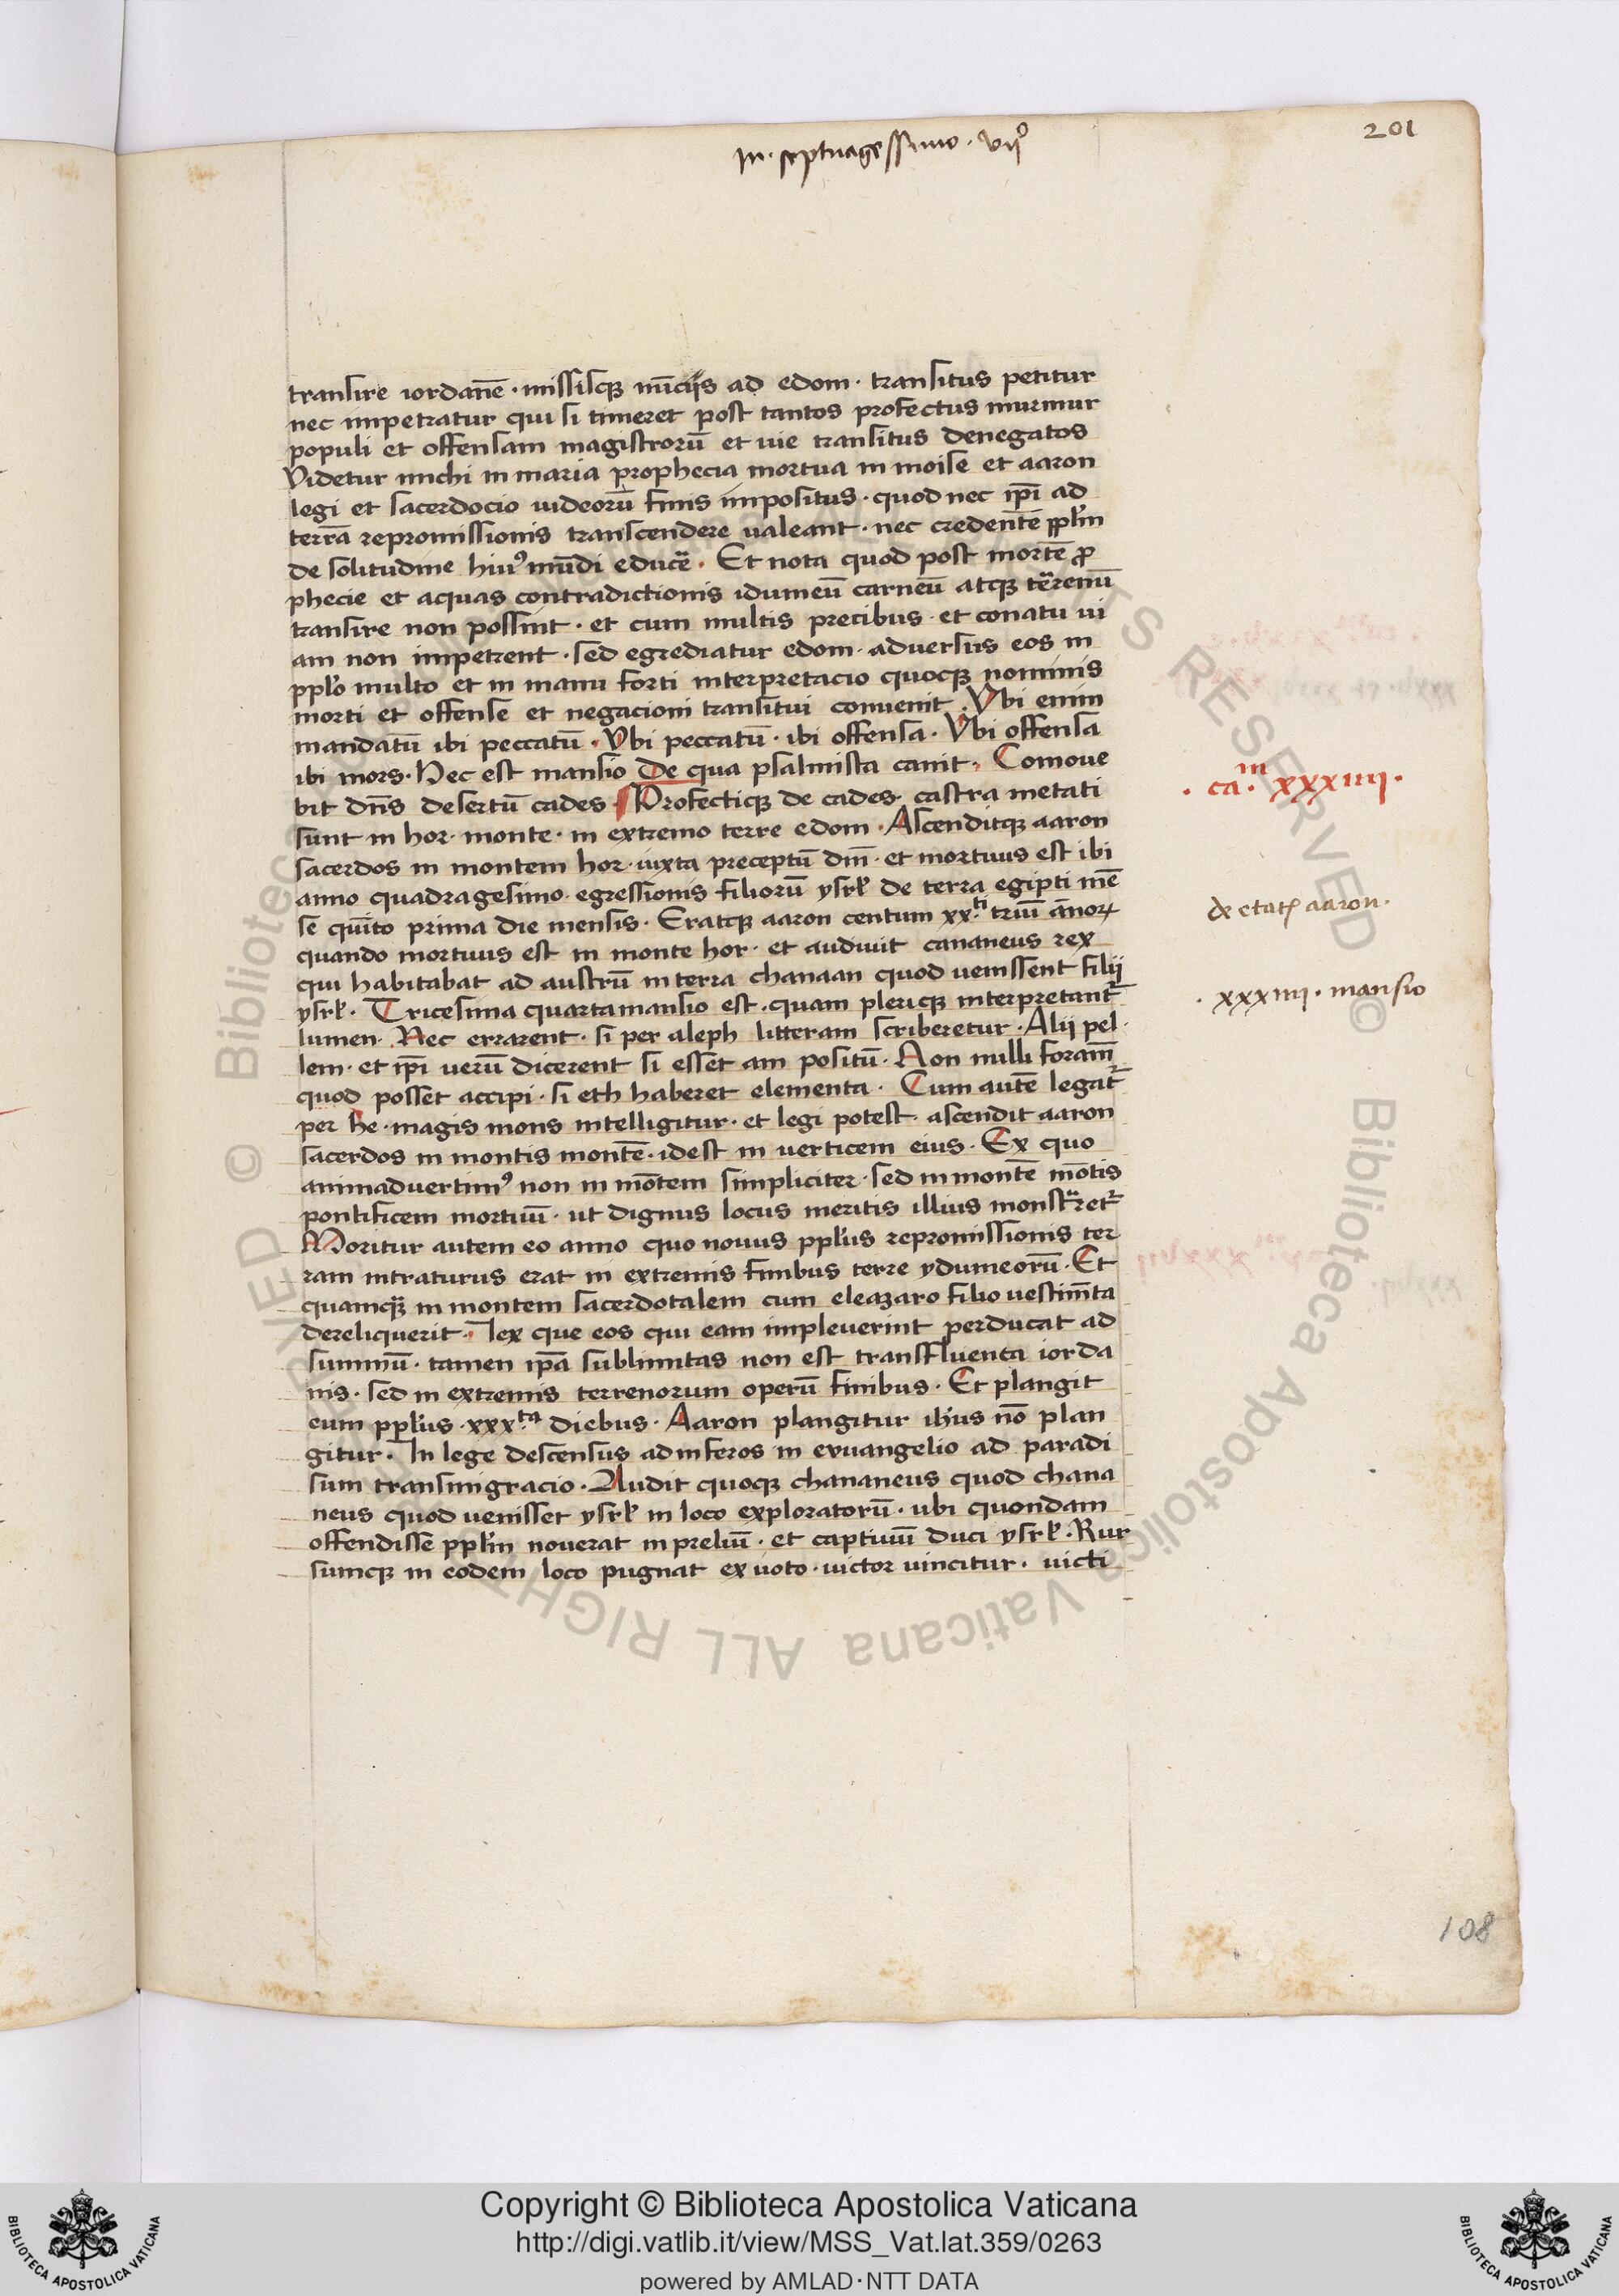 in · septuagessimo · vijº
201
transire iordanē · missisqꝫ nūcijs ad edom · transitus petitur
nec impetratur qui si timeret post tantos profectus murmur
populi et offensam magistrorū et uie transitus denegatos
Videtur michi in maria prophecia mortua in moise et aaron
legi et sacerdocio iudeorū finis impositus · quod nec ip̄i ad
terrā repromissionis transcendere ualeant · nec credentē pplm̄
de solitudine huiꝰ mūdi educē̄ · Et nota quod post mortē ꝓ
phecie et aquas contradictionis idumeū carneū atqꝫ terrenū
transire non possint · et cum multis precibus · et conatu ui
am non impetrent · sed egrediatur edom · aduersus eos in
pplo̅ multo et in manu forti interpretacio quocqꝫ nominis
morti et offense et negacioni transitui conuenit · Vbi enim
mandatū ibi peccatū · Vbi peccatū · ibi offensa · Vbi offensa
ibi mors · Hec est mansio de qua psalmista canit · Comoue
bit dn̄s desertū cades · Profectiqꝫ de cades · castra metati
sunt in hor · monte · in extremo terre edom · Ascenditqꝫ aaron
sacerdos in montem hor · iuxta preceptū dn̄i · et mortuus est ibi
anno quadragesimo · egressionis filiorū ysrl̄ de terra egipti mē
se quīto prima die mensis · Eratqꝫ aaron centum xx.ti triū ānoꝝ
quando mortuus est in monte hor · et audiuit cananeus rex
qui habitabat ad austrū in terra chanaan quod uenissent filij
ysrl̄ · Tricesima quarta mansio est · quam plericqꝫ interpretant᷑
lumen · Nec errarent · si per aleph litteram scriberetur · Alij pel
lem · et ip̄i uerū dicerent si esset am positū · Non nulli foramē̄
quod posset accipi · si eth haberet elementa · Cum autē legat᷑
per he · magis mons intelligitur · et legi potest · ascendit aaron
sacerdos in montis montē · idest in uerticem eius · Ex quo
animaduertimꝰ non in mōtem simpliciter · sed in montē mōtis
pontificem mortuū · ut dignus locus meritis illius monstraret᷑
Moritur autem eo anno quo nouus pplu̅s repromissionis ter
ram intraturus erat in extremis finibus terre ydumeorū · Et
quamqꝫ̄ in montem sacerdotalem cum eleazaro filio uestim̄ta
dereliquerit · lex que eos qui eam impleuerint perducat ad
summū · tamen ip̄a sublimitas non est transfluenta iorda
nis · sed in extremis terrenorum operū finibus · Et plangit
eum pplu̅s · xxx.ta diebus · Aaron plangitur ih̄us nō plan
gitur · In lege descensus ad inferos in euuangelio ad paradi
sum transmigracio · Audit quoqꝫ chananeus quod chana
neus quod uenisset ysrl̄ in loco exploratorū · ubi quondam
offendisse pplm̄ nouerat in preliū · et captiuū duci ysrl̄ · Rur
sumqꝫ in eodem loco pugnat ex uoto · uictor uincitur · uicti
· ca.m xxxiiii ·
de etate aaron ·
· xxxiiii · mansio
108
© Biblioteca Apostolica Vaticana ALL RIGHTS RESERVED
Copyright © Biblioteca Apostolica Vaticana
http://digi.vatlib.it/view/MSS_Vat.lat.359/0263
powered by AMLAD·NTT DATA
BIBLIOTECA APOSTOLICA VATICANA
BIBLIOTECA APOSTOLICA VATICANA